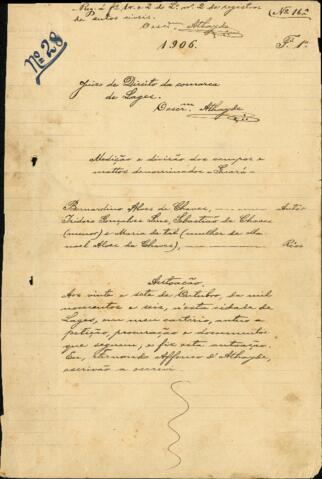 Reg. á fl. 1v. e 2 do L.º nº 2 de registro
de autos civeis.
Escr.m Athayde
(Nº 162
Nº 28
1906. Fª 1ª
Juizo de Direito da comarca
de Lages.
Oescr.m Athayde
Medição e divisão dos campos e
mattos denominados - Guará -
Bernardino Alves de Chaves, Autôr
Izidoro Gonçalves Lins, Sebastião de Chaves
(menor) e Maria de tal (mulher de Ma
noel Alves de Chaves), Réos
Autoação.
Aos vinte e sete de Outubro, de mil
novecentos e seis, n'esta cidade de
Lages, em meu cartorio, autoo a
petição, procuração e documentos
que seguem; e fiz esta autoação.
Eu, Fernando Affonso d'Athayde,
escrivão a escrevi